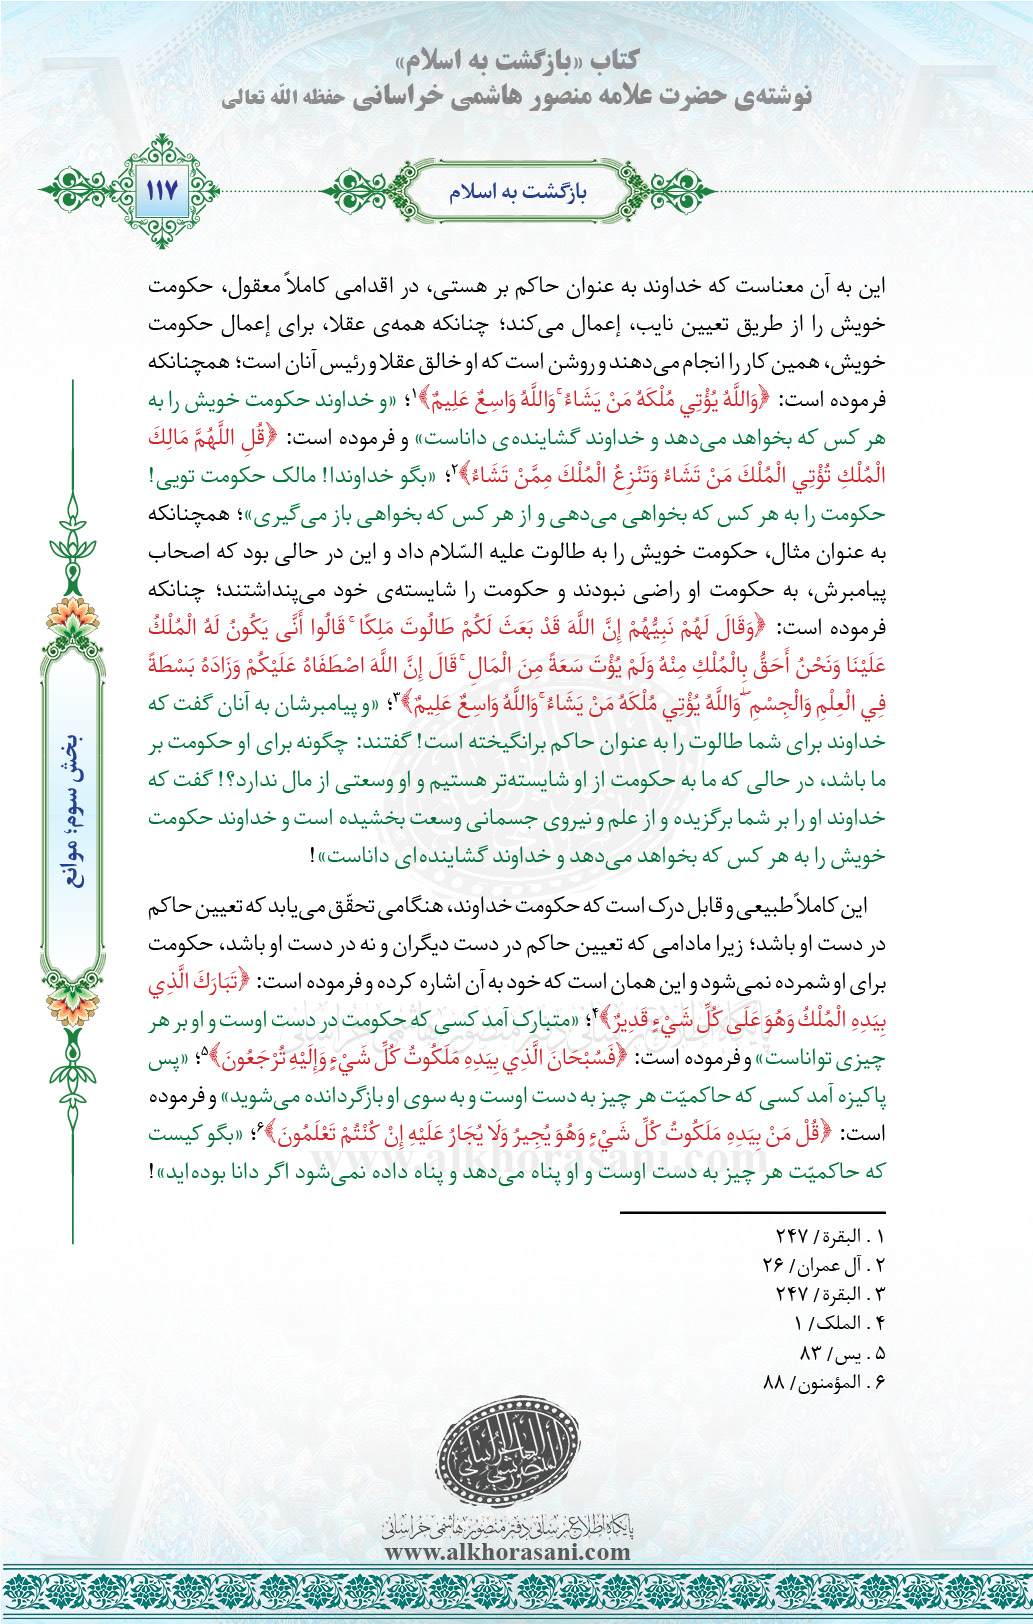 کتاب «بازگشت به اسلام»
نوشته‌ی حضرت علامه منصور هاشمی خراسانی حفظه الله تعالی
۱۱۷
بازگشت به اسلام
این به آن معناست که خداوند به عنوان حاکم بر هستی، در اقدامی کاملاً معقول، حکومت
خویش را از طریق تعیین نایب، إعمال می‌کند؛ چنانکه همه‌ی عقلا، برای إعمال حکومت
خویش، همین کار را انجام می‌دهند و روشن است که او خالق عقلا و رئیس آنان است؛ همچنانکه
فرموده است: ﴿وَاللَّهُ يُؤْتِي مُلْكَهُ مَنْ يَشَاءُ ۚ وَاللَّهُ وَاسِعٌ عَلِيمٌ﴾۱؛ «و خداوند حکومت خویش را به
هر کس که بخواهد می‌دهد و خداوند گشاینده‌ی داناست» و فرموده است: ﴿قُلِ اللَّهُمَّ مَالِكَ
الْمُلْكِ تُؤْتِي الْمُلْكَ مَنْ تَشَاءُ وَتَنْزِعُ الْمُلْكَ مِمَّنْ تَشَاءُ﴾۲؛ «بگو خداوندا! مالک حکومت تویی!
حکومت را به هر کس که بخواهی می‌دهی و از هر کس که بخواهی باز می‌گیری»؛ همچنانکه
به عنوان مثال، حکومت خویش را به طالوت علیه السّلام داد و این در حالی بود که اصحاب
پیامبرش، به حکومت او راضی نبودند و حکومت را شایسته‌ی خود می‌پنداشتند؛ چنانکه
فرموده است: ﴿وَقَالَ لَهُمْ نَبِيُّهُمْ إِنَّ اللَّهَ قَدْ بَعَثَ لَكُمْ طَالُوتَ مَلِكًا ۚ قَالُوا أَنَّى يَكُونُ لَهُ الْمُلْكُ
عَلَيْنَا وَنَحْنُ أَحَقُّ بِالْمُلْكِ مِنْهُ وَلَمْ يُؤْتَ سَعَةً مِنَ الْمَالِ ۚ قَالَ إِنَّ اللَّهَ اصْطَفَاهُ عَلَيْكُمْ وَزَادَهُ بَسْطَةً
فِي الْعِلْمِ وَالْجِسْمِ ۖ وَاللَّهُ يُؤْتِي مُلْكَهُ مَنْ يَشَاءُ ۚ وَاللَّهُ وَاسِعٌ عَلِيمٌ﴾۳؛ «و پیامبرشان به آنان گفت که
خداوند برای شما طالوت را به عنوان حاکم برانگیخته است! گفتند: چگونه برای او حکومت بر
ما باشد، در حالی که ما به حکومت از او شایسته‌تر هستیم و او وسعتی از مال ندارد؟! گفت که
خداوند او را بر شما برگزیده و از علم و نیروی جسمانی وسعت بخشیده است و خداوند حکومت
خویش را به هر کس که بخواهد می‌دهد و خداوند گشاینده‌ای داناست»!
این کاملاً طبیعی و قابل درک است که حکومت خداوند، هنگامی تحقّق می‌یابد که تعیین حاکم
در دست او باشد؛ زیرا مادامی که تعیین حاکم در دست دیگران و نه در دست او باشد، حکومت
برای او شمرده نمی‌شود و این همان است که خود به آن اشاره کرده و فرموده است: ﴿تَبَارَكَ الَّذِي
بِيَدِهِ الْمُلْكُ وَهُوَ عَلَى كُلِّ شَيْءٍ قَدِيرٌ﴾۴؛ «متبارک آمد کسی که حکومت در دست اوست و او بر هر
چیزی تواناست» و فرموده است: ﴿فَسُبْحَانَ الَّذِي بِيَدِهِ مَلَكُوتُ كُلِّ شَيْءٍ وَإِلَيْهِ تُرْجَعُونَ﴾۵؛ «پس
پاکیزه آمد کسی که حاکمیّت هر چیز به دست اوست و به سوی او بازگردانده می‌شوید» و فرموده
است: ﴿قُلْ مَنْ بِيَدِهِ مَلَكُوتُ كُلِّ شَيْءٍ وَهُوَ يُجِيرُ وَلَا يُجَارُ عَلَيْهِ إِنْ كُنْتُمْ تَعْلَمُونَ﴾۶؛ «بگو کیست
که حاکمیّت هر چیز به دست اوست و او پناه می‌دهد و پناه داده نمی‌شود اگر دانا بوده‌اید»!
بخش سوم؛ موانع
۱ . البقرة/ ۲۴۷
۲ . آل عمران/ ۲۶
۳ . البقرة/ ۲۴۷
۴ . الملک/ ۱
۵ . یس/ ۸۳
۶ . المؤمنون/ ۸۸
المنصور الهاشمی الخراسانی
پایگاه اطلاع‌رسانی دفتر منصور هاشمی خراسانی
www.alkhorasani.com